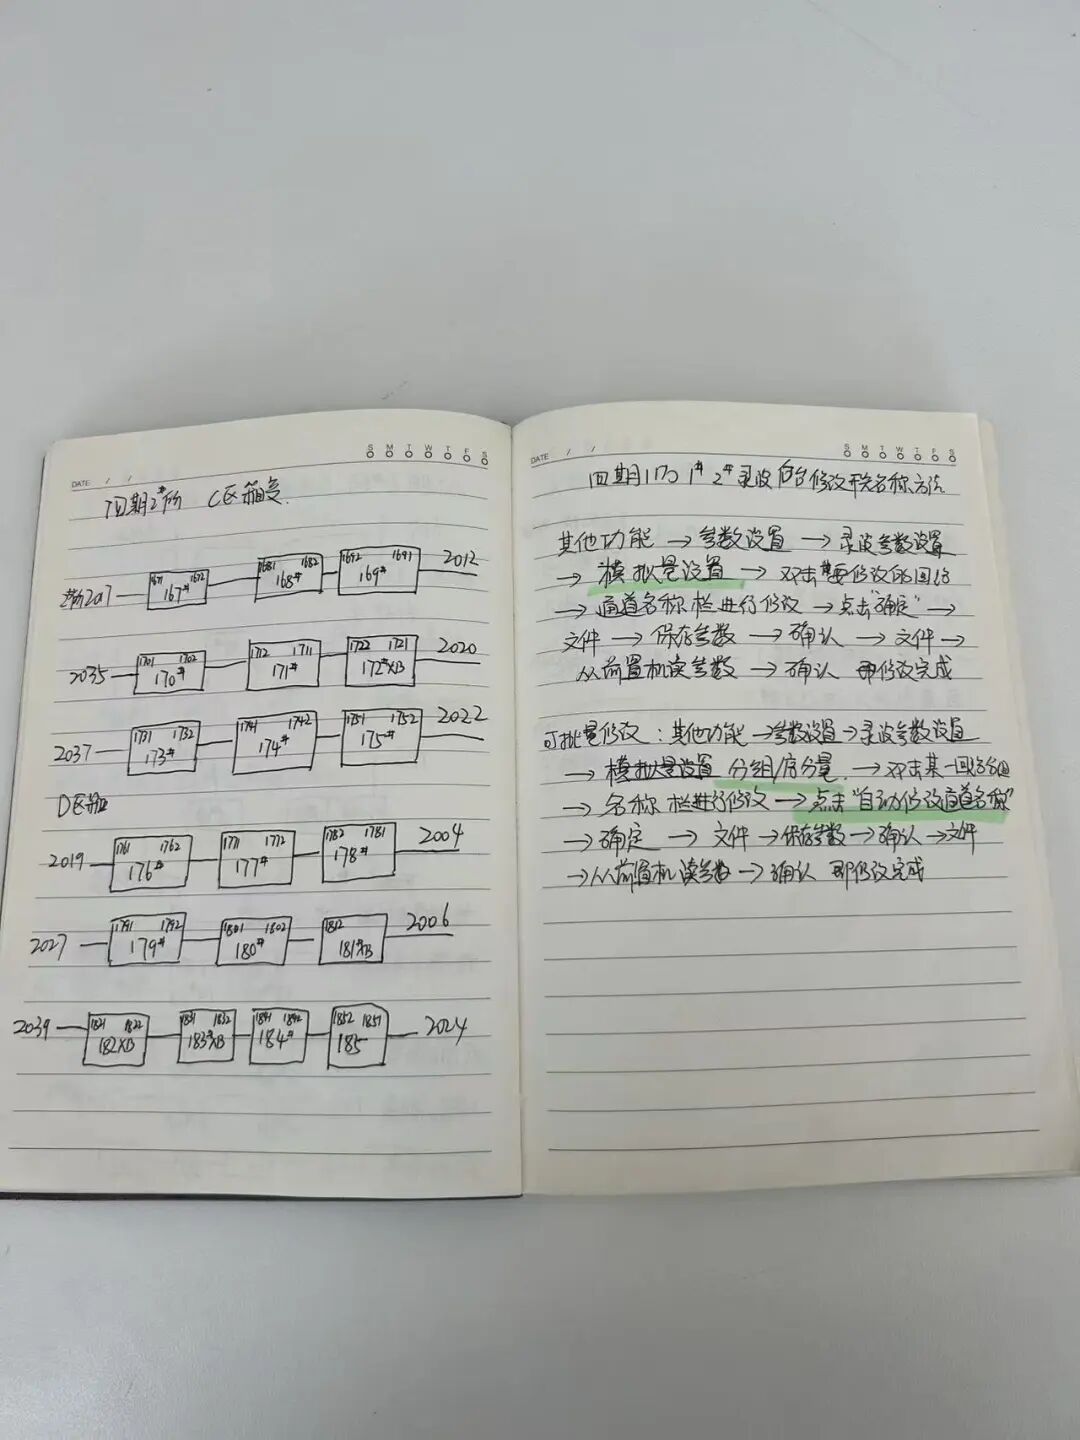 DATE / /
S M T W T F S
四期2#所 C区箱变.
2017 1671 1672 167# 1681 1682 168# 1692 1691 169# 2012
2035 1701 1702 170# 1712 1711 171# 1722 1721 172#XB 2020
2037 1731 1732 173# 1741 1742 174# 1751 1752 175# 2022
D区
2019 1761 1762 176# 1771 1772 177# 1782 1781 178# 2004
2027 1791 1792 179# 1801 1802 180# 1812 181#XB 2006
2039 1821 1822 182XB 1831 1832 183#XB 1841 1842 184# 1852 1851 185 2024
DATE / /
S M T W T F S
四期 1# 2# 录波后台修改开关名称方法
其他功能 → 参数设置 → 录波参数设置
→ 模拟量设置 → 双击要修改的回路
→ 通道名称栏进行修改 → 点击"确定" →
文件 → 保存参数 → 确认 → 文件 →
从前置机读参数 → 确认 即修改完成
可批量修改：其他功能 → 参数设置 → 录波参数设置
→ 模拟量设置 分组/序分量 → 双击某一回路
→ 名称栏进行修改 → 点击"自动修改通道名称"
→ 确定 → 文件 → 保存参数 → 确认 → 文件
→ 从前置机读参数 → 确认 即修改完成